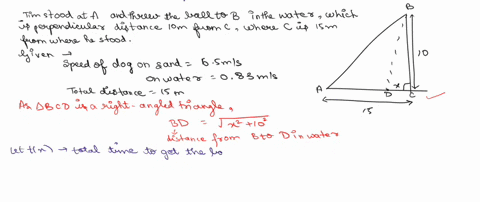 Tim stood at A and threw the ball to B in the water, which
is perpendicular distance 10m from C, where C is 15m
from where he stood.
Given →
Speed of dog on sand = 6.5m/s
on water = 0.83m/s
Total distance = 15 m
As ΔBCD is a right-angled triangle,
BD = √x²+10²
distance from B to D in water
Let t(x) → total time to got the bo
B
10
A
D
x
C
15